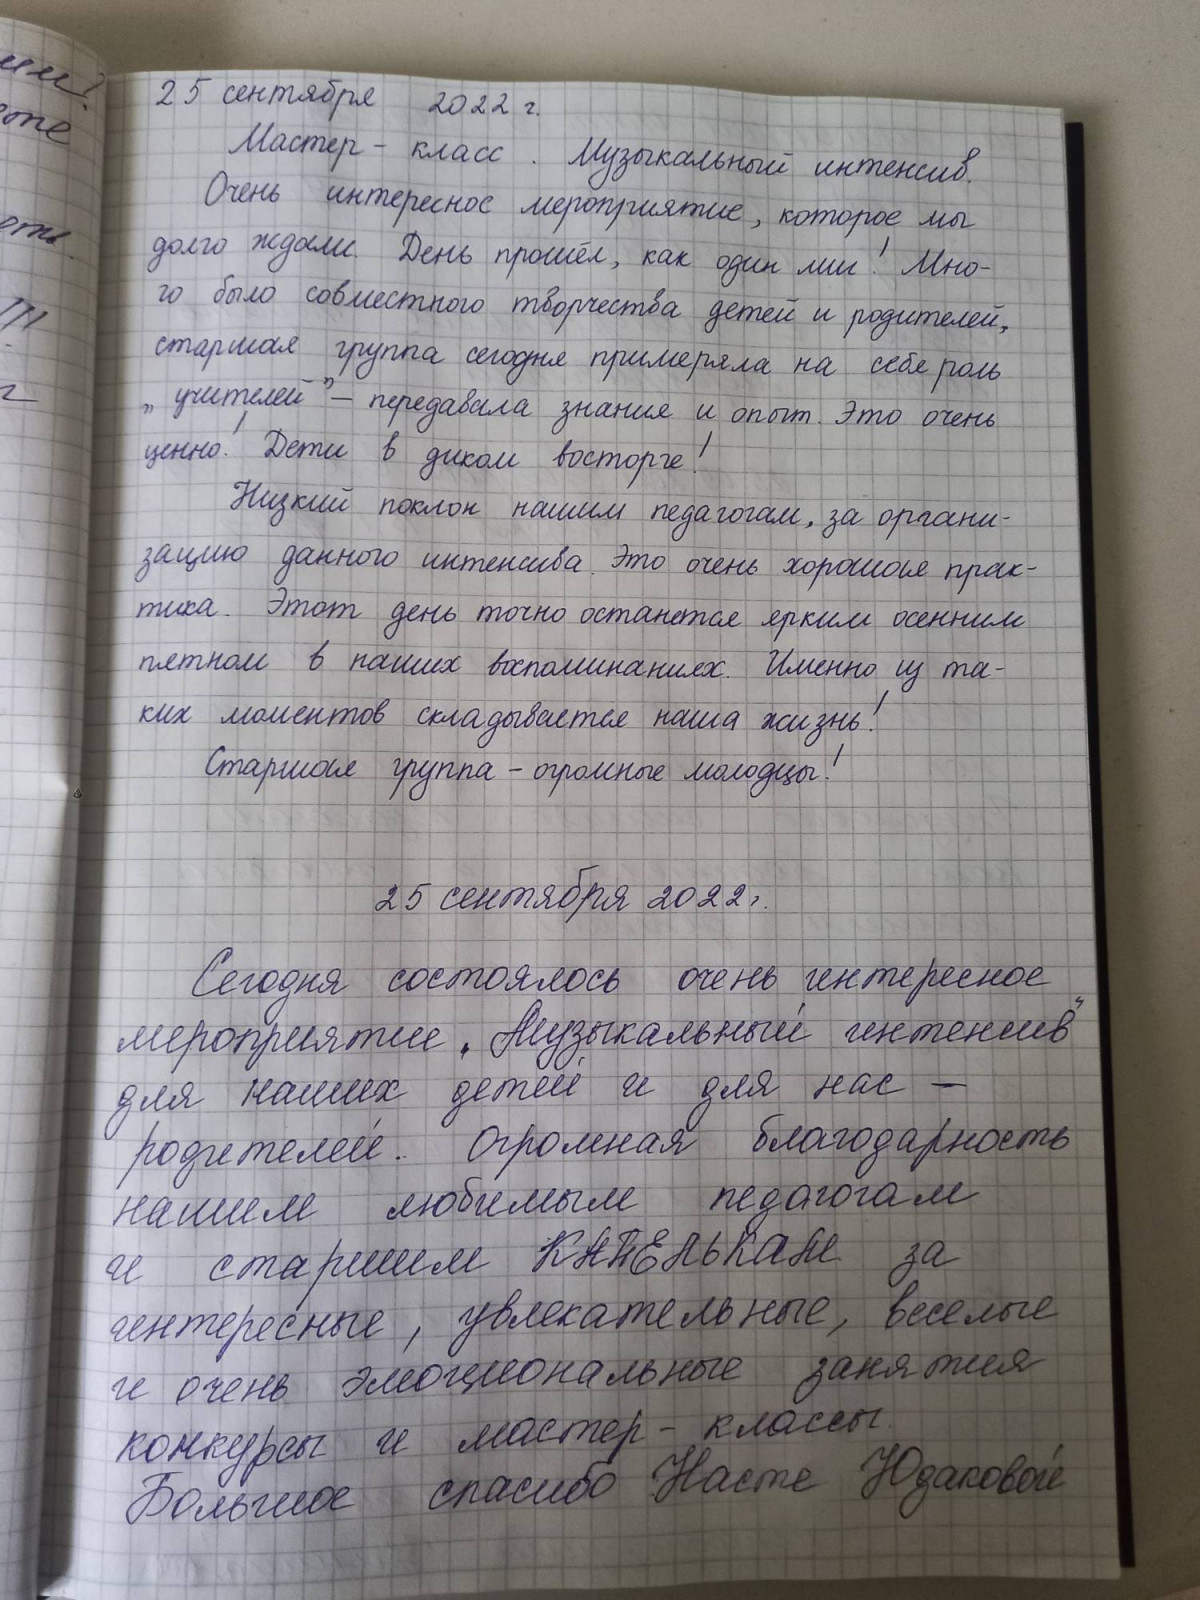 25 сентября 2022 г.
Мастер-класс. Музыкальный интенсив.
Очень интересное мероприятие, которое мы
долго ждали. День прошёл, как один миг! Мно-
го было совместного творчества детей и родителей,
старшая группа сегодня примеряла на себе роль
„учителей" – передавала знания и опыт. Это очень
ценно! Дети в диком восторге!
Низкий поклон нашим педагогам, за органи-
зацию данного интенсива. Это очень хорошая прак-
тика. Этот день точно останется ярким осенним
пятном в наших воспоминаниях. Именно из та-
ких моментов складывается наша жизнь!
Старшая группа – огромные молодцы!
25 сентября 2022 г.
Сегодня состоялось очень интересное
мероприятие „Музыкальный интенсив"
для наших детей и для нас –
родителей. Огромная благодарность
нашим любимым педагогам
и старшим КАПЕЛЬКАМ за
интересные, увлекательные, веселые
и очень эмоциональные занятия
конкурсы и мастер-классы.
Большое спасибо Насте Юдаковой